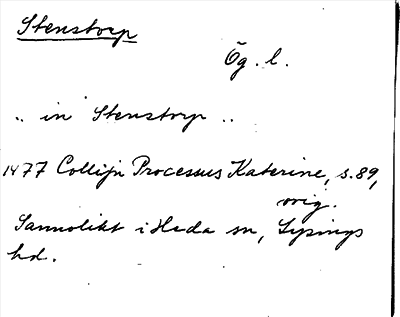 Stenstorp
Ög. l.
.. in Stenstorp ..
1477 Collijn Processus Katerine, s. 89,
orig.
Sannolikt i Heda sn, Lysings
hd.